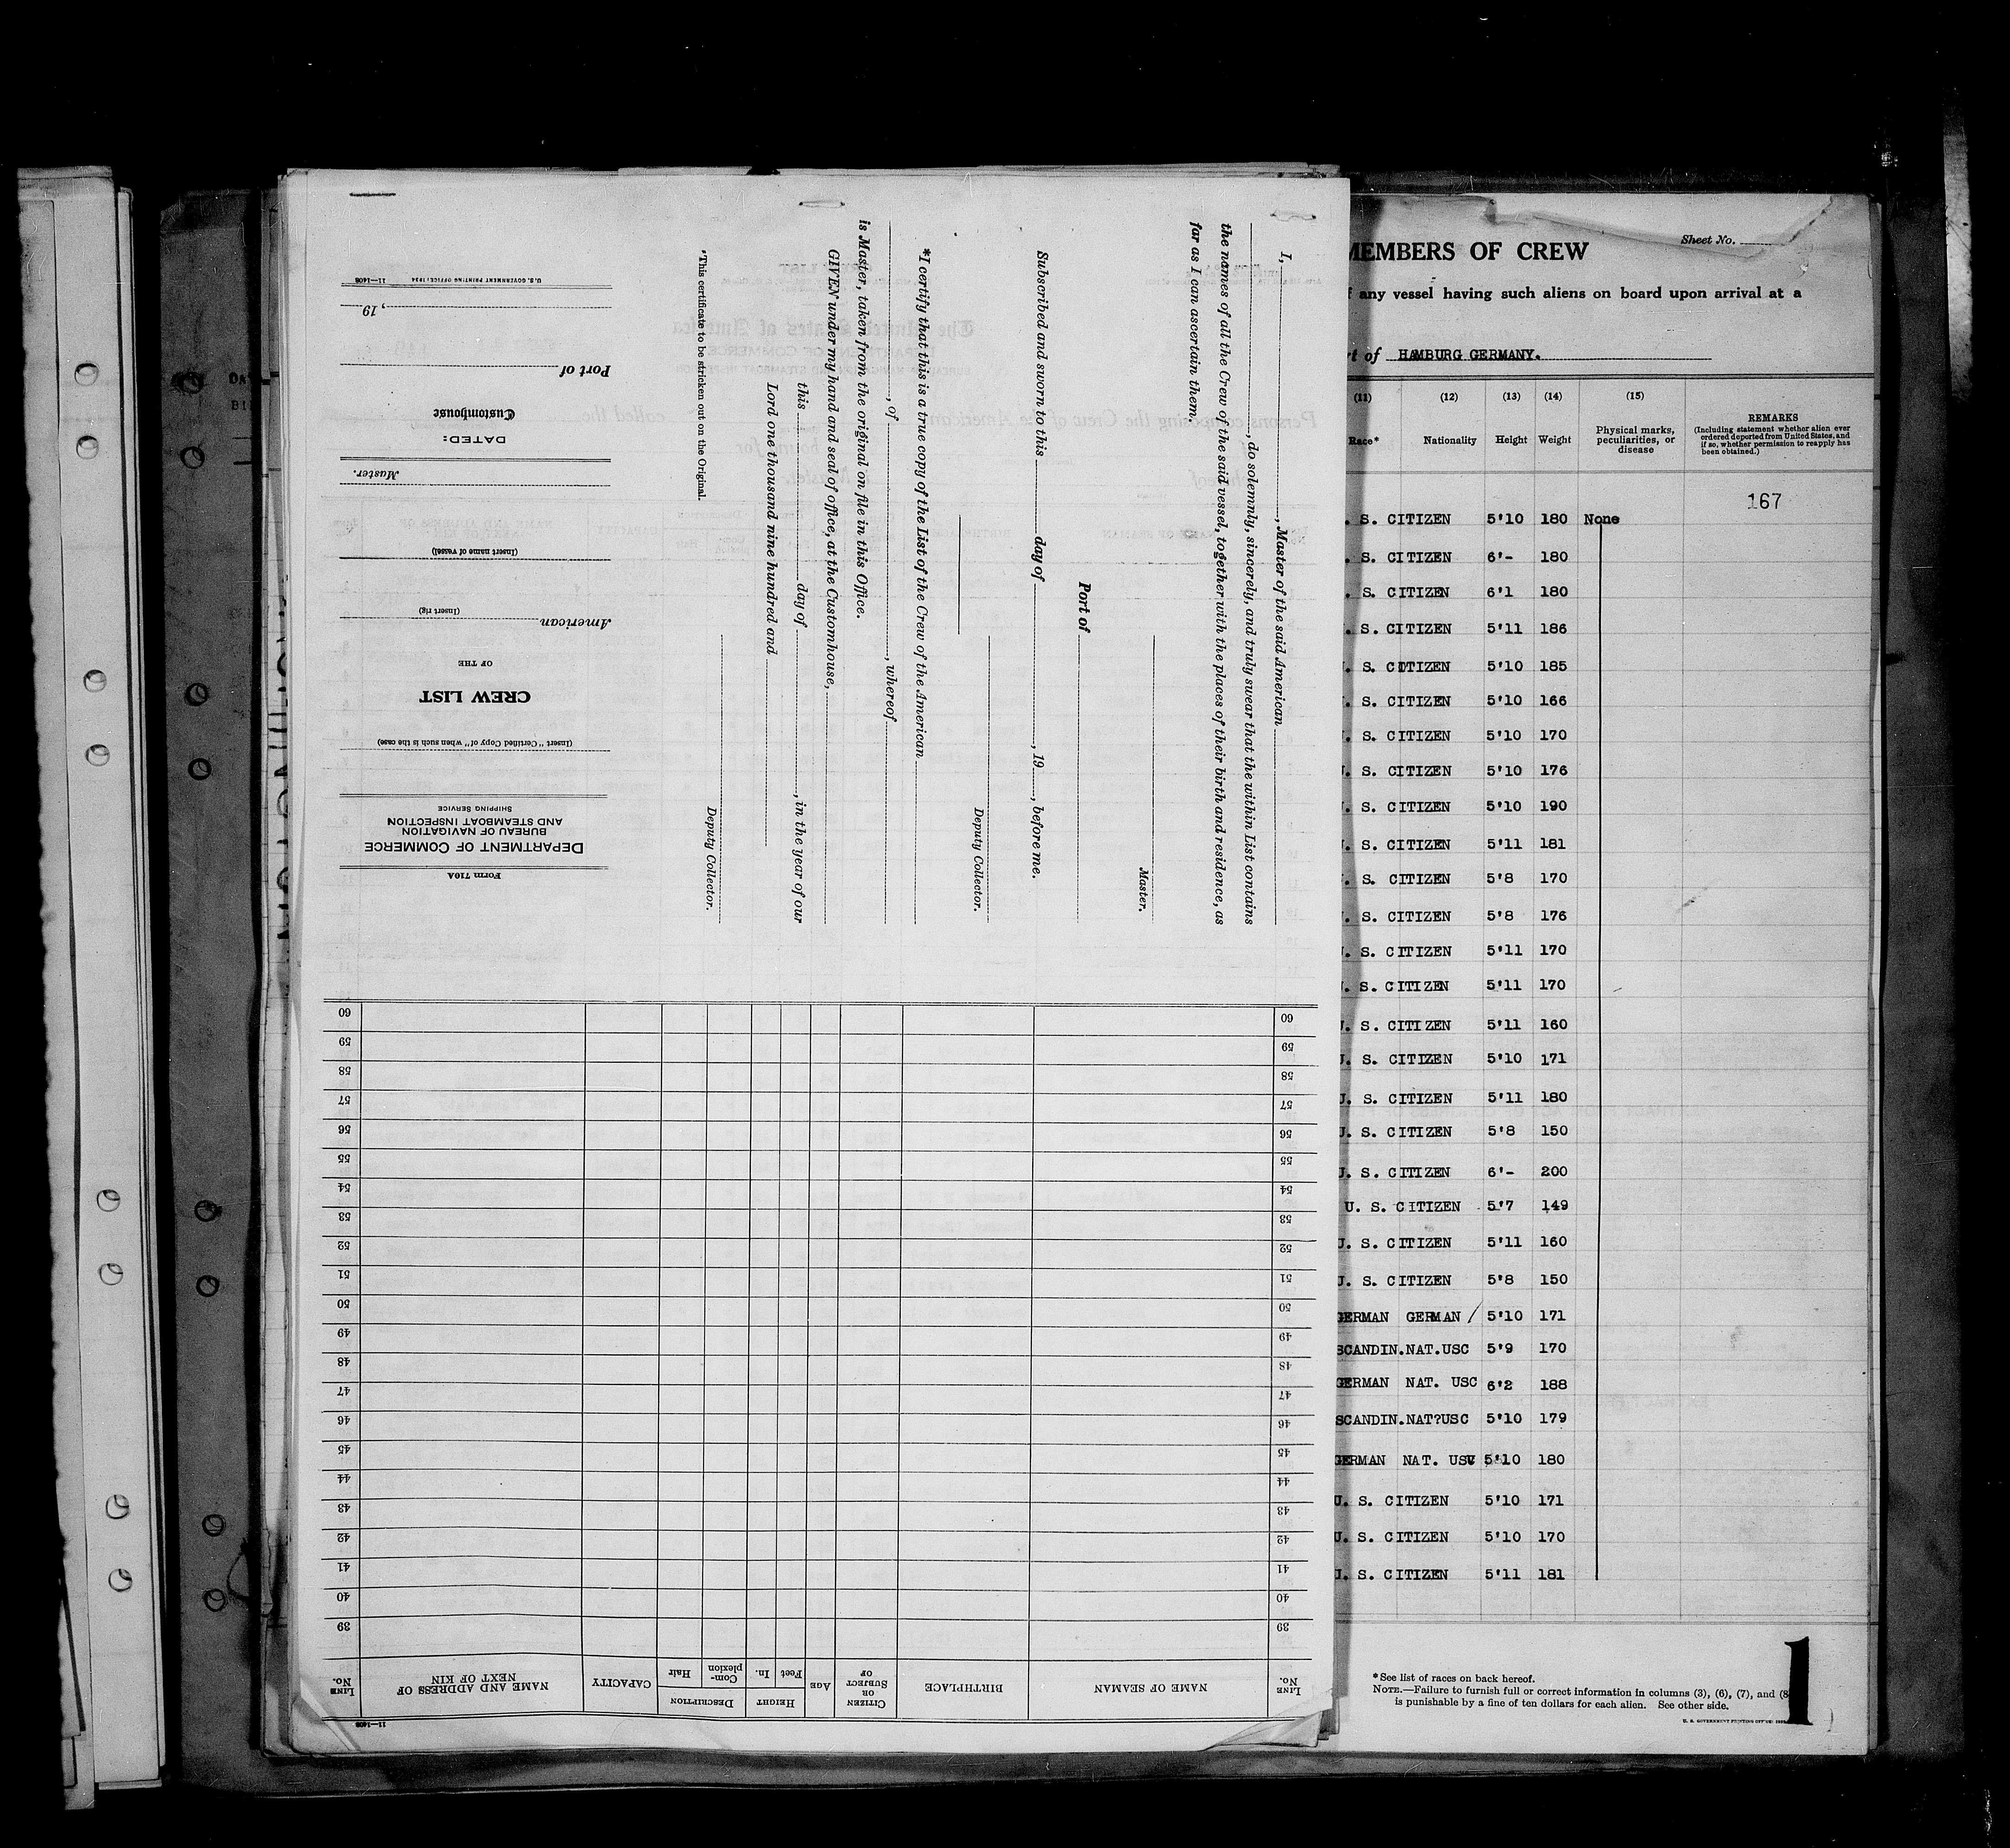 I, , Master of the said American
, do solemnly, sincerely, and truly swear that the within List contains
the names of all the Crew of the said vessel, together with the places of their birth and residence, as
far as I can ascertain them.
Master.
Port of
Subscribed and sworn to this day of , 19 , before me.
Deputy Collector.
*I certify that this is a true copy of the List of the Crew of the American
, of , whereof
is Master, taken from the original on file in this Office.
GIVEN under my hand and seal of office, at the Customhouse,
this day of , in the year of our
Lord one thousand nine hundred and
Deputy Collector.
*This certificate to be stricken out on the Original.
Form 710A
DEPARTMENT OF COMMERCE
BUREAU OF NAVIGATION
AND STEAMBOAT INSPECTION
SHIPPING SERVICE
(Insert "Certified Copy of" when such is the case)
CREW LIST
OF THE
American
(Insert rig)
(Insert name of vessel)
Master.
DATED:
Customhouse
Port of
, 19
U.S. GOVERNMENT PRINTING OFFICE: 1934 11—1408
11—1408
LINE No. NAME OF SEAMAN BIRTHPLACE CITIZEN OR SUBJECT OF AGE HEIGHT Feet In. DESCRIPTION Complexion Hair CAPACITY NAME AND ADDRESS OF NEXT OF KIN LINE No.
39 39
40 40
41 41
42 42
43 43
44 44
45 45
46 46
47 47
48 48
49 49
50 50
51 51
52 52
53 53
54 54
55 55
56 56
57 57
58 58
59 59
60 60
Sheet No.
MEMBERS OF CREW
any vessel having such aliens on board upon arrival at a
of HAMBURG GERMANY.
(11) (12) (13) (14) (15)
Race* Nationality Height Weight Physical marks, peculiarities, or disease
REMARKS
(Including statement whether alien ever
ordered deported from United States, and
if so, whether permission to reapply has
been obtained.)
167
. S. CITIZEN 5'10 180 None
. S. CITIZEN 6'- 180
. S. CITIZEN 6'1 180
. S. CITIZEN 5'11 186
. S. CITIZEN 5'10 185
. S. CITIZEN 5'10 166
. S. CITIZEN 5'10 170
. S. CITIZEN 5'10 176
. S. CITIZEN 5'10 190
. S. CITIZEN 5'11 181
. S. CITIZEN 5'8 170
. S. CITIZEN 5'8 176
. S. CITIZEN 5'11 170
. S. CITIZEN 5'11 170
. S. CITIZEN 5'11 160
. S. CITIZEN 5'10 171
U. S. CITIZEN 5'11 180
U. S. CITIZEN 5'8 150
U. S. CITIZEN 6'- 200
U. S. CITIZEN 5'7 149
U. S. CITIZEN 5'11 160
U. S. CITIZEN 5'8 150
GERMAN GERMAN / 5'10 171
SCANDIN.NAT.USC 5'9 170
GERMAN NAT. USC 6'2 188
SCANDIN.NAT?USC 5'10 179
GERMAN NAT. USC 5'10 180
U. S. CITIZEN 5'10 171
U. S. CITIZEN 5'10 170
U. S. CITIZEN 5'11 181
*See list of races on back hereof.
NOTE.—Failure to furnish full or correct information in columns (3), (6), (7), and (8
is punishable by a fine of ten dollars for each alien. See other side.
1